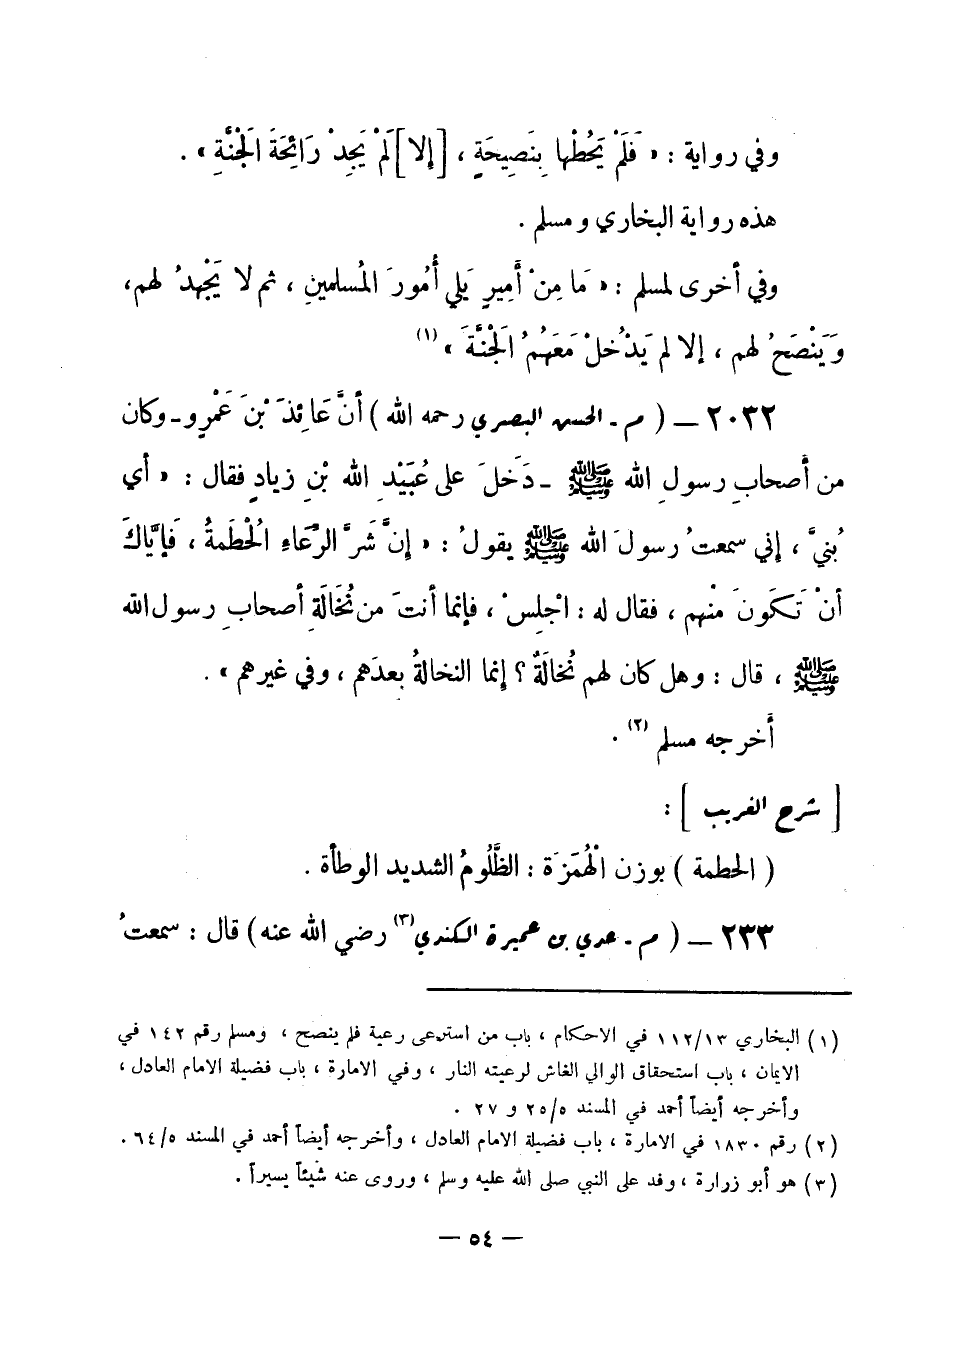 وفي رواية : « فَلَمْ يَحُطْها بِنَصِيحَةٍ ، [إلا] لَمْ يَجِدْ رَائِحَةَ الجَنَّةِ » .
هذه رواية البخاري ومسلم .
وفي أخرى لمسلم : « مَا مِنْ أَمِيرٍ يَلي أُمُورَ المُسلمينِ ، ثم لا يَجْهدُ لهم،
وَيَنْصَحُ لهم ، إلا لم يَدْخُلْ مَعَهُمُ الجَنَّةَ » (١)
٢٠٣٢ – ( م - الحسن البصري رحمه الله ) أنَّ عَائِذَ بْنَ عَمْرٍو - وكان
من أصحابِ رسولِ الله ﷺ - دَخَلَ على عُبَيْدِ الله بْنِ زيادٍ فقال : « أي
بُنيَّ ، إني سمعتُ رسولَ الله ﷺ يقولُ : « إنَّ شَرَّ الرِّعَاءِ الْحُطَمةُ ، فَإيَّاكَ
أنْ تَكونَ مْنهم ، فقال له : اجْلِسْ ، فإنما أنتَ من نُخَالَةِ أصحابِ رسول الله
ﷺ ، قال : وهل كان لهم نُخالَةٌ ؟ إنما النخالةُ بعدَهم ، وفي غيرهم » .
أخرجه مسلم (٢) .
[ شرح الغريب ] :
( الحطمة ) بوزن الْهُمَزَة : الظَّلُومُ الشديد الوطأة .
٢٣٣ – ( م - عدي بن عميرة الكندي (٣) رضي الله عنه ) قال : سمعتُ
(١) البخاري ١٣/ ١١٢ في الاحكام ، باب من استرعى رعية فلم ينصح ، ومسلم رقم ١٤٢ في
الايمان ، باب استحقاق الوالي الغاش لرعيته النار ، وفي الامارة ، باب فضيلة الامام العادل ،
وأخرجه أيضاً أحمد في المسند ٥/ ٢٥ و ٢٧ .
(٢) رقم ١٨٣٠ في الامارة ، باب فضيلة الامام العادل ، وأخرجه أيضاً أحمد في المسند ٥/ ٦٤ .
(٣) هو أبو زرارة ، وفد على النبي صلى الله عليه وسلم ، وروى عنه شيئاً يسيراً .
— ٥٤ —